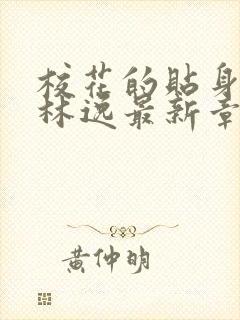 校花的貼身
林逸最新章
黃仲明